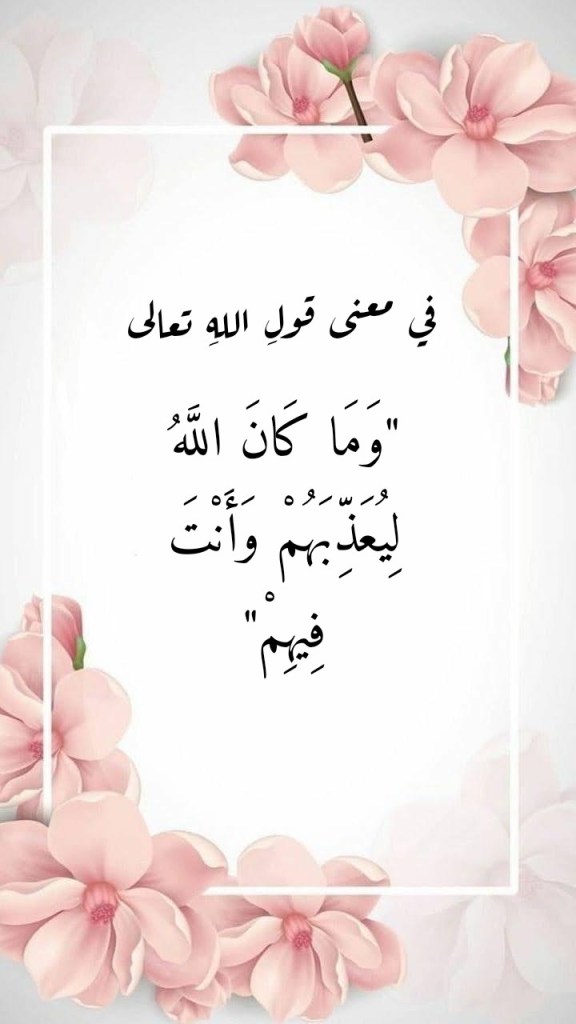 في معنى قولِ اللهِ تعالى
"وَمَا كَانَ اللَّهُ
لِيُعَذِّبَهُمْ وَأَنْتَ
فِيهِمْ"